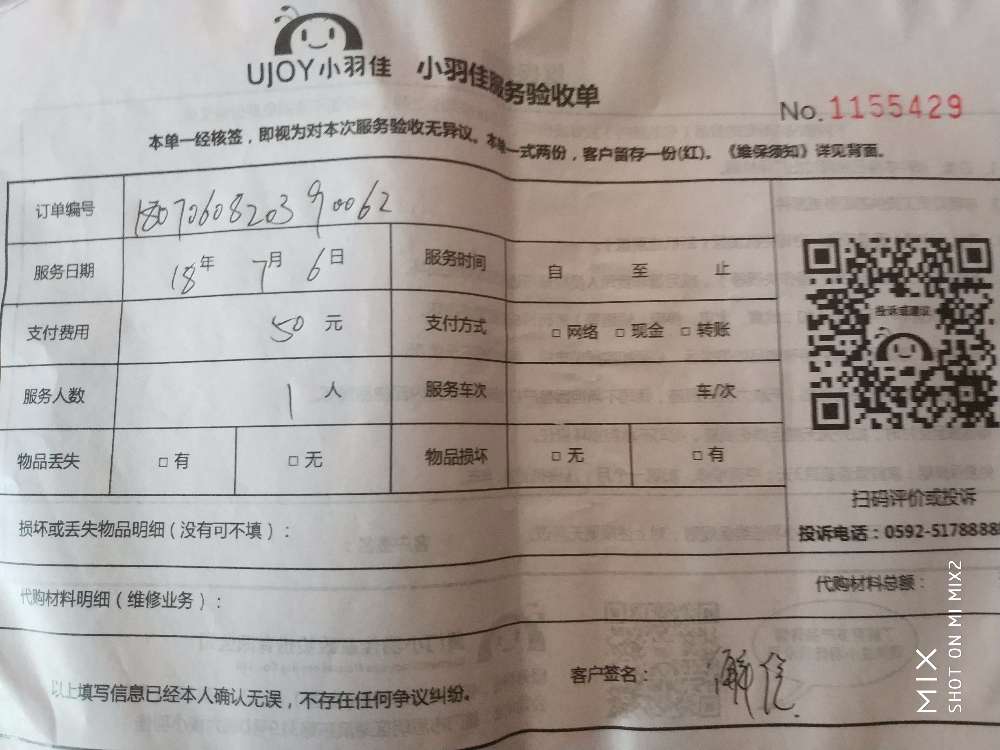 UJOY小羽佳 小羽佳服务验收单
No. 1155429
本单一经核签，即视为对本次服务验收无异议。本单一式两份，客户留存一份(红)。《维保须知》详见背面。
订单编号 1807060820390062
服务日期 18年 7月 6日 服务时间 自 至 止
投诉或建议
支付费用 50 元 支付方式 □网络 □现金 □转账
服务人数 1 人 服务车次 车/次
物品丢失 □有 □无 物品损坏 □无 □有
扫码评价或投诉
损坏或丢失物品明细（没有可不填）：
投诉电话：0592-5178888
代购材料明细（维修业务）： 代购材料总额：
以上填写信息已经本人确认无误，不存在任何争议纠纷。 客户签名：
MIX
SHOT ON MI MIX2